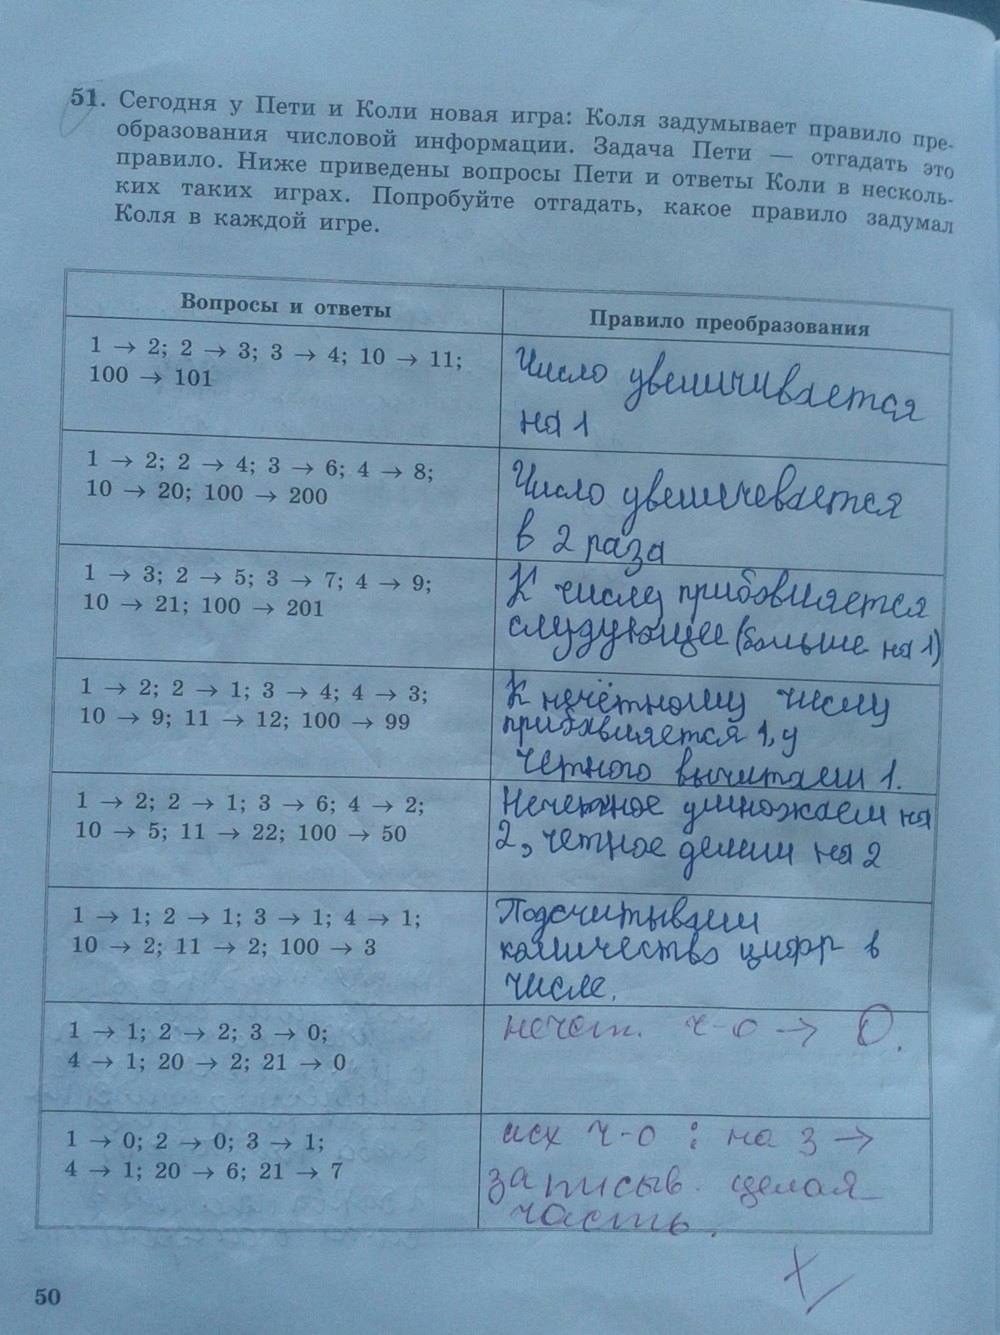 51. Сегодня у Пети и Коли новая игра: Коля задумывает правило пре-
образования числовой информации. Задача Пети — отгадать это
правило. Ниже приведены вопросы Пети и ответы Коли в несколь-
ких таких играх. Попробуйте отгадать, какое правило задумал
Коля в каждой игре.
Вопросы и ответы
Правило преобразования
1 → 2; 2 → 3; 3 → 4; 10 → 11;
100 → 101
Число увеличивается
на 1
1 → 2; 2 → 4; 3 → 6; 4 → 8;
10 → 20; 100 → 200
Число увеличевается
в 2 раза
1 → 3; 2 → 5; 3 → 7; 4 → 9;
10 → 21; 100 → 201
К числу прибовляется
слудующее (больше на 1)
1 → 2; 2 → 1; 3 → 4; 4 → 3;
10 → 9; 11 → 12; 100 → 99
К нечётному числу
прибавляется 1, у
четного вычитаем 1.
1 → 2; 2 → 1; 3 → 6; 4 → 2;
10 → 5; 11 → 22; 100 → 50
Нечетное умножаем на
2, четное делим на 2
1 → 1; 2 → 1; 3 → 1; 4 → 1;
10 → 2; 11 → 2; 100 → 3
Подсчитываем
количество цифр в
числе.
1 → 1; 2 → 2; 3 → 0;
4 → 1; 20 → 2; 21 → 0
нечет. ч-о → 0.
1 → 0; 2 → 0; 3 → 1;
4 → 1; 20 → 6; 21 → 7
исх ч-о : на 3 →
записыв. целая
часть.
50